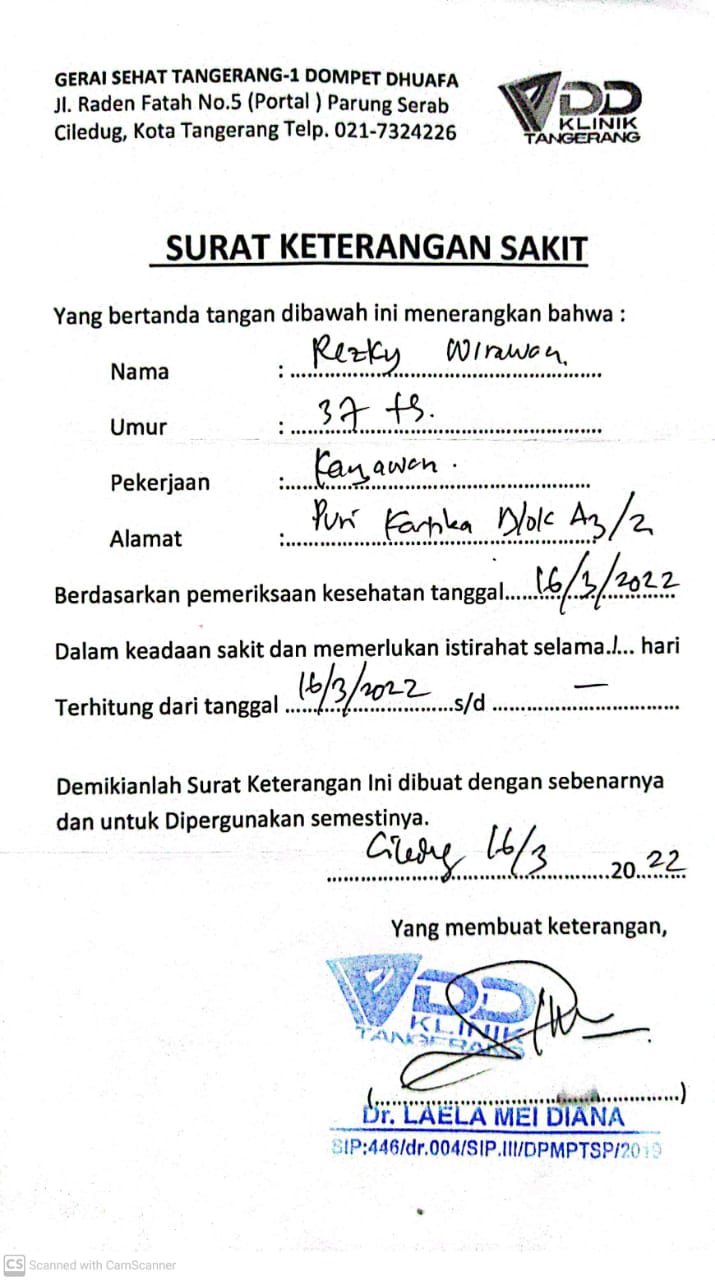 GERAI SEHAT TANGERANG-1 DOMPET DHUAFA
Jl. Raden Fatah No.5 (Portal ) Parung Serab
Ciledug, Kota Tangerang Telp. 021-7324226
DD
KLINIK
TANGERANG
SURAT KETERANGAN SAKIT
Yang bertanda tangan dibawah ini menerangkan bahwa :
Nama : Rezky Wirawan
Umur : 37 th.
Pekerjaan : Karyawan.
Alamat : Puri Kartika Blok A3/2
Berdasarkan pemeriksaan kesehatan tanggal......16/3/2022
Dalam keadaan sakit dan memerlukan istirahat selama.1... hari
Terhitung dari tanggal ......16/3/2022......s/d ...... —
Demikianlah Surat Keterangan Ini dibuat dengan sebenarnya
dan untuk Dipergunakan semestinya.
Ciledug 16/3 20..22
Yang membuat keterangan,
DD
KLINIK
TANGERANG
(..................................................)
Dr. LAELA MEI DIANA
SIP:446/dr.004/SIP.III/DPMPTSP/2019
CS Scanned with CamScanner